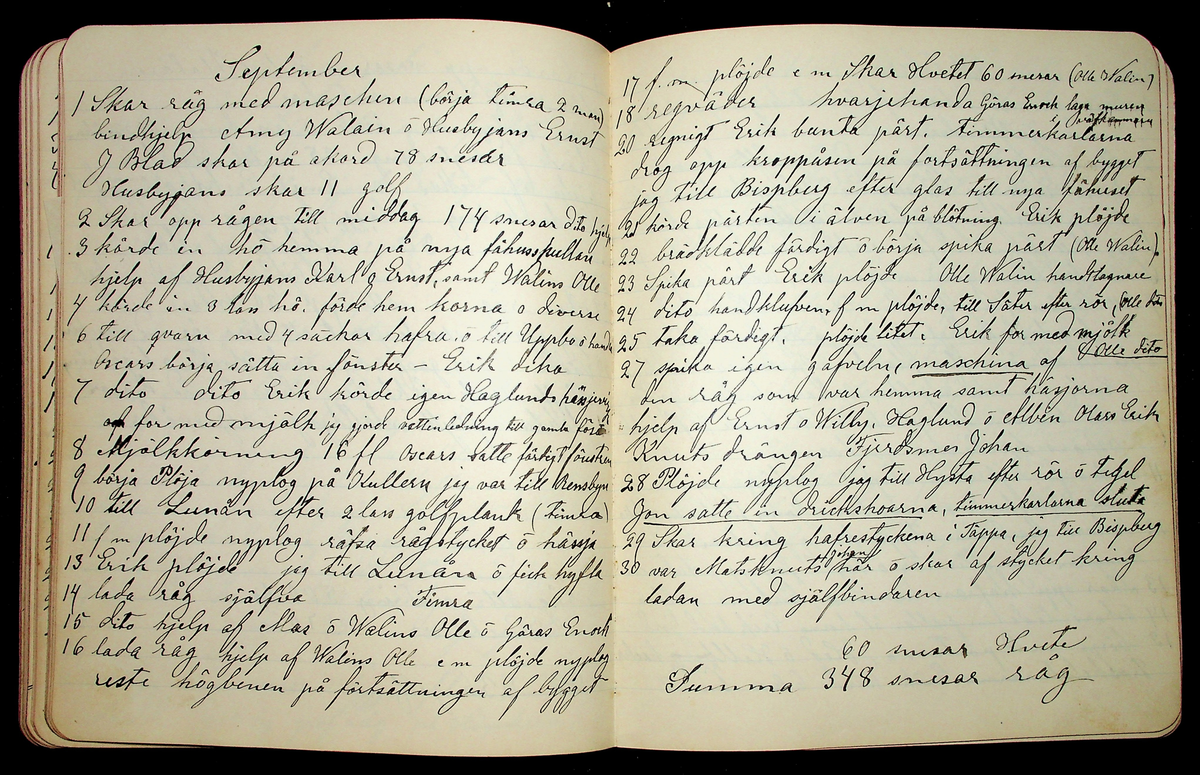 September
1 Skar råg med maschen (börja timra 2 man)
bindhjelp Amy Walain ö Husbyjans Ernst
J Blad skar på akord 78 snesar
Husbyjans skar 11 golf
2 Skar opp rågen till middag 174 snesar dito hjelp
3 körde in hö hemma på nya fähusskullan
hjelp af Husbyjans Karl o Ernst, samt Walins Olle
4 körde in 3 lass hö. förde hem korna o diverse
6 till qvarn med 4 säckar hafra. ö till Uppbo ö handla
Oscars börja sätta in fönster – Erik dika
7 dito dito Erik körde igen Haglunds
for med mjölk jag gjorde vattenledning till gamla
8 Mjölkkörning 16 fl Oscars satte färdigt fönstren
9 börja Plöja nyplog på Kullern jag var till Rensbyn
10 till Lunån efter 2 lass golfplank (timra)
11 f m plöjde nyplog räfsa rågstycket ö hässja
13 Erik plöjde jag till Lunån ö fick hyfla
14 lada råg själfva Timra
15 dito hjelp af Mas ö Walins Olle ö Göras Enock
16 lada råg hjelp af Walins Olle e m plöjde nyplog
reste högbenen på förtsättningen af bygget
17 f. m. plöjde e m Skar Hvetet 60 snesar (Olle Walin)
18 regväder hvarjehanda Göras Enock laga muren
i
20 regnigt Erik bunta pärt. timmerkarlarna
drog opp kroppåsen på fortsättningen af bygget
jag till Bispberg efter glas till nya fähuset
21 körde pärten i älven på blötning Erik plöjde
22 brädklädde färdigt ö börja spika pärt (Olle Walin).
23 Spika pärt Erik plöjde Olle Walin handtlagnare
24 dito handklupen, f m plöjde, till Säter efter rör, (Olle dito
25 taka färdigt. plöjde litet. Erik for med mjölk
(Olle dito
27 spika igen gafveln, maschina af
den råg som var hemma samt hässjorna
hjelp af Ernst o Willy. Haglund ö Albin Olars Erik
Knuts drängen Fjerdsmes Johan
28 Plöjde nyplog jag till Hysta efter rör ö tegel
Jon satte in drickshoarna, timmerkarlarna sluta
29 Skar kring hafrestyckena i Täppa, jag till Bispberg
30 var Matsknuts Johan här ö skar af stycket kring
ladan med själfbindaren
60 snesar Hvete
Summa 348 snesar råg